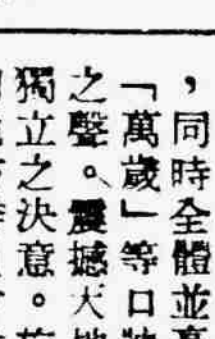 ，同時全體並
「萬歲」等口
之聲。震撼大地
獨立之決意。